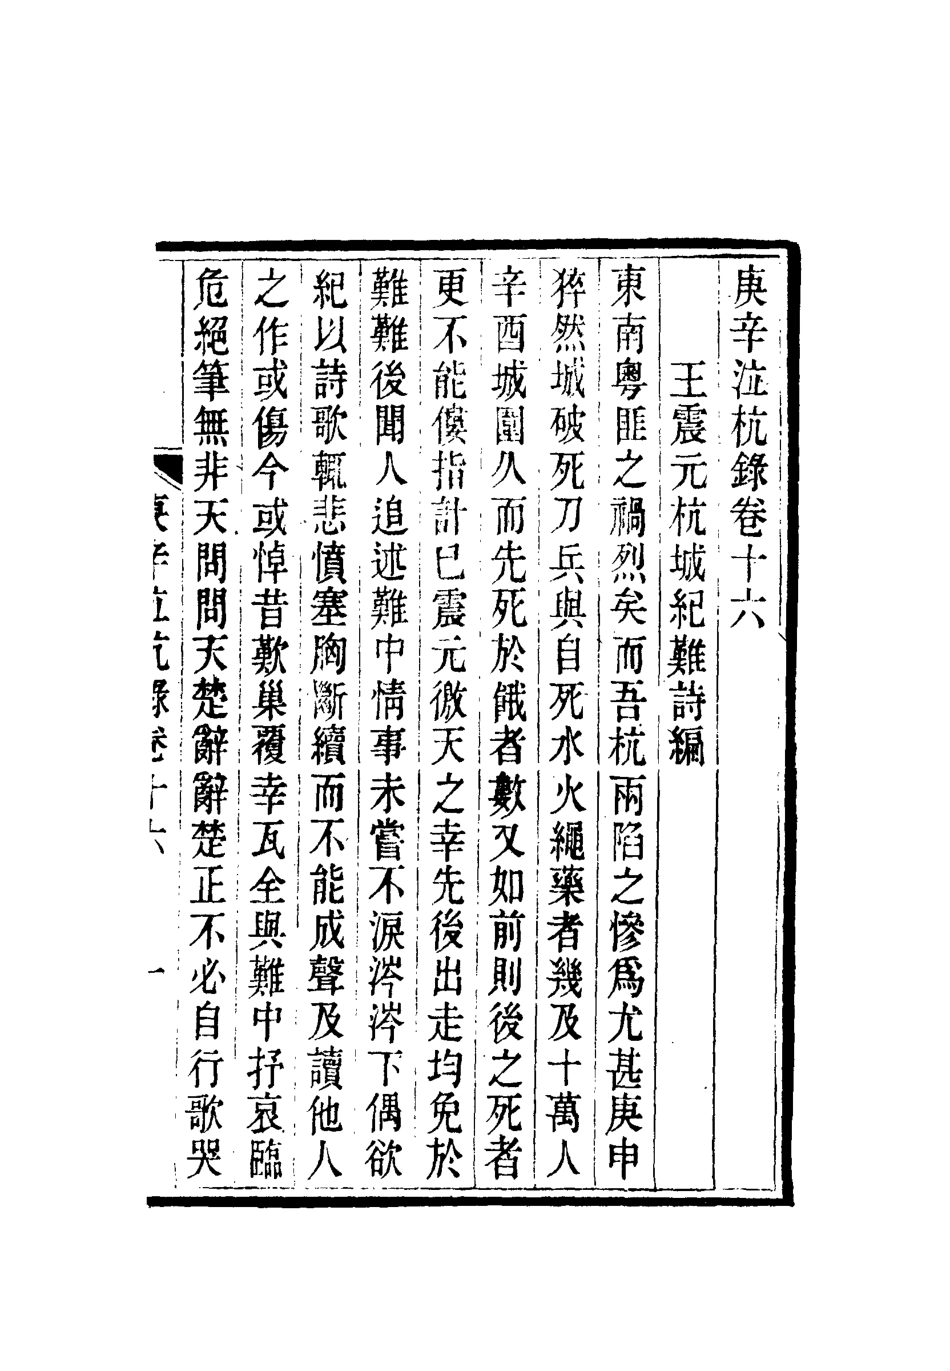 庚辛泣杭錄卷十六
王震元杭城紀難詩編
東南粵匪之禍烈矣而吾杭兩陷之慘爲尤甚庚申
猝然城破死刀兵與自死水火繩藥者幾及十萬人
辛酉城圍久而先死於餓者數又如前則後之死者
更不能僂指計巳震元徼天之幸先後出走均免於
難難後聞人追述難中情事未嘗不淚涔涔下偶欲
紀以詩歌輒悲憤塞胸斷續而不能成聲及讀他人
之作或傷今或悼昔歎巢覆幸瓦全與難中抒哀臨
危絕筆無非天問問天楚辭辭楚正不必自行歌哭
庚辛泣杭錄卷十六 一